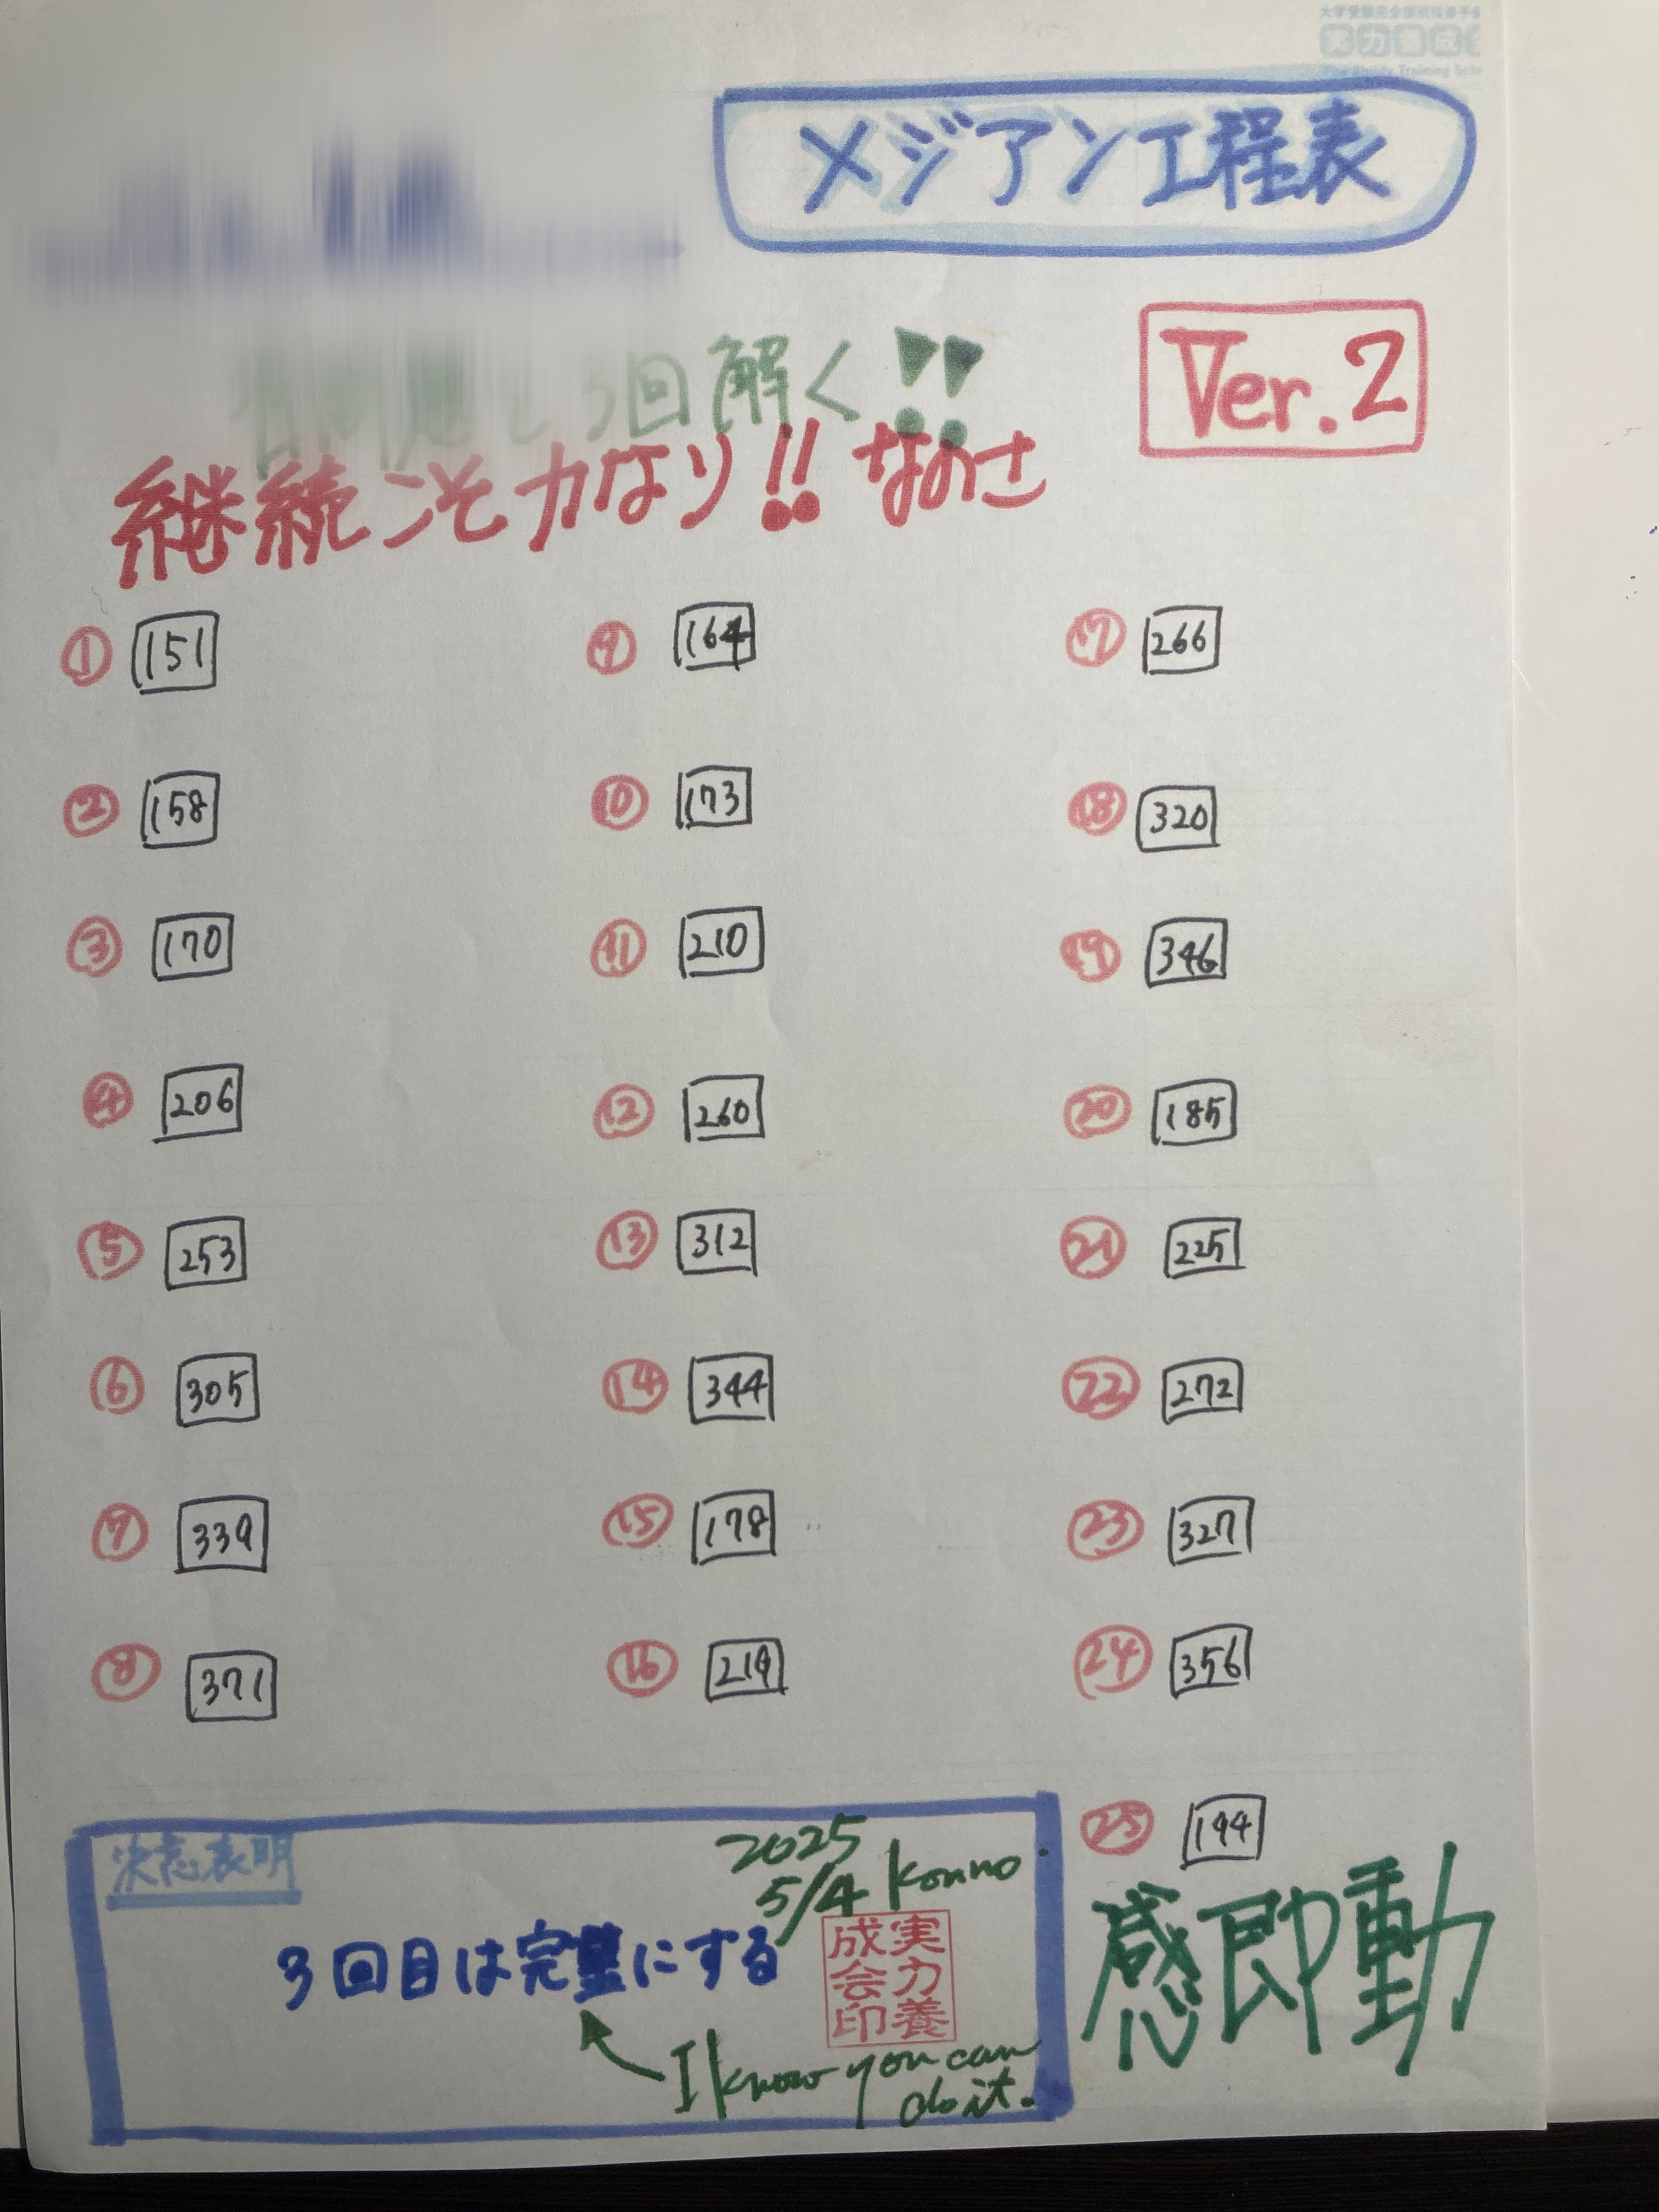 メジアン工程表
Ver.2
3回解く!!
継続こそ力なり!! なのさ
① 151
② 158
③ 170
④ 206
⑤ 253
⑥ 305
⑦ 339
⑧ 371
⑨ 164
⑩ 173
⑪ 210
⑫ 260
⑬ 312
⑭ 344
⑮ 178
⑯ 219
⑰ 266
⑱ 320
⑲ 346
⑳ 185
㉑ 225
㉒ 272
㉓ 327
㉔ 356
㉕ 194
決意表明
2025
5/4 Konno.
3回目は完璧にする
実力養成会印
I know you can
do it.
感即動